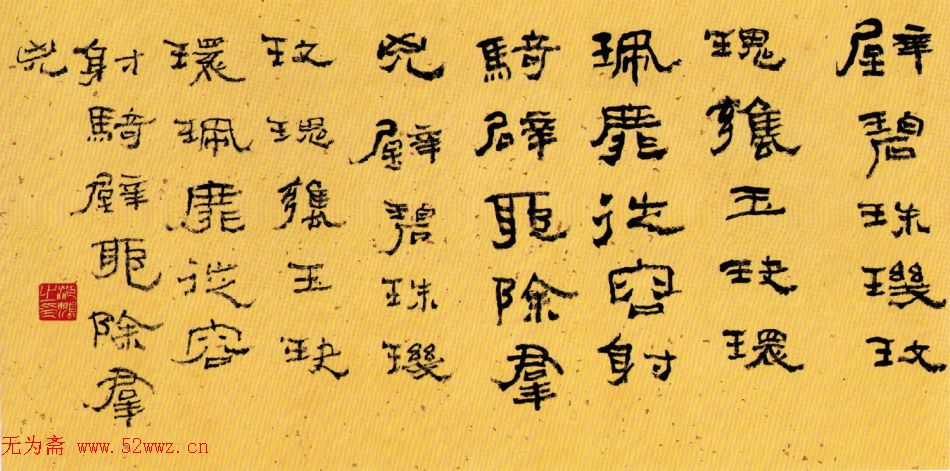 璧碧珠璣玫
瑰甕玉玦環
珮靡從容射
騎辟耶除羣
兇璧碧珠璣
玫瑰甕玉玦
環珮靡從容
射騎辟耶除羣
兇
无为斋 www.52wwz.cn